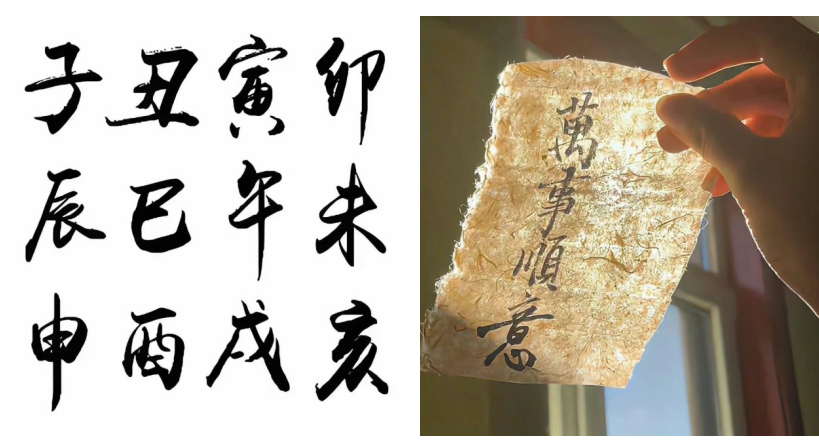 子丑寅卯
辰巳午未
申酉戌亥
萬事順意